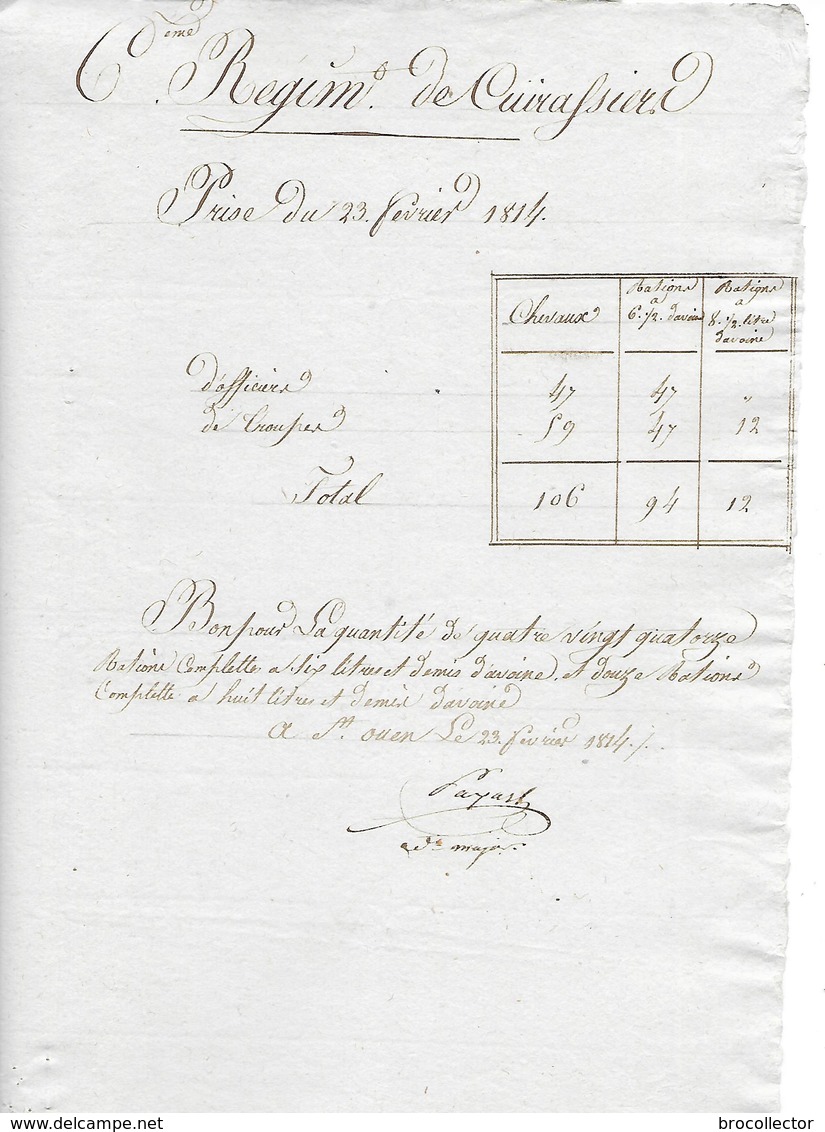 6.eme Regimt. de Cuirassiers
Prise du 23. fevrier 1814.
Chevaux | Rations a 6. 1/2. davoine | Rations a 8. 1/2. litre davoine
d'officiers | 47 | 47 | "
de troupes | 59 | 47 | 12
Total | 106 | 94 | 12
Bon pour La quantité de quatre vingt quatorze
Rations Complettes a six litres et demis d'avoine. et douze Rations
Complette a huit litres et demis davoine
a St. ouen Le 23. fevrier 1814./.
major
delcampe.net
brocollector